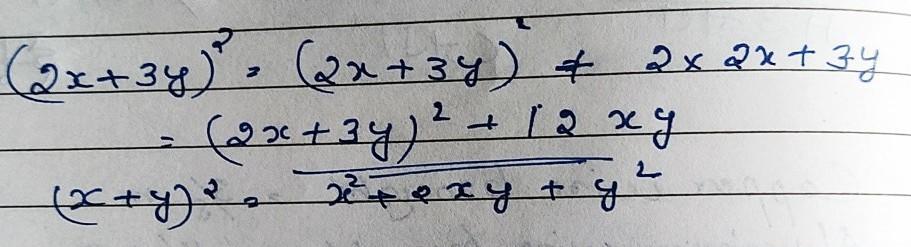 (2x+3y)² = (2x+3y)² + 2x 2x + 3y
= (2x+3y)² + 12 xy
(x+y)² = x² + 2xy + y²